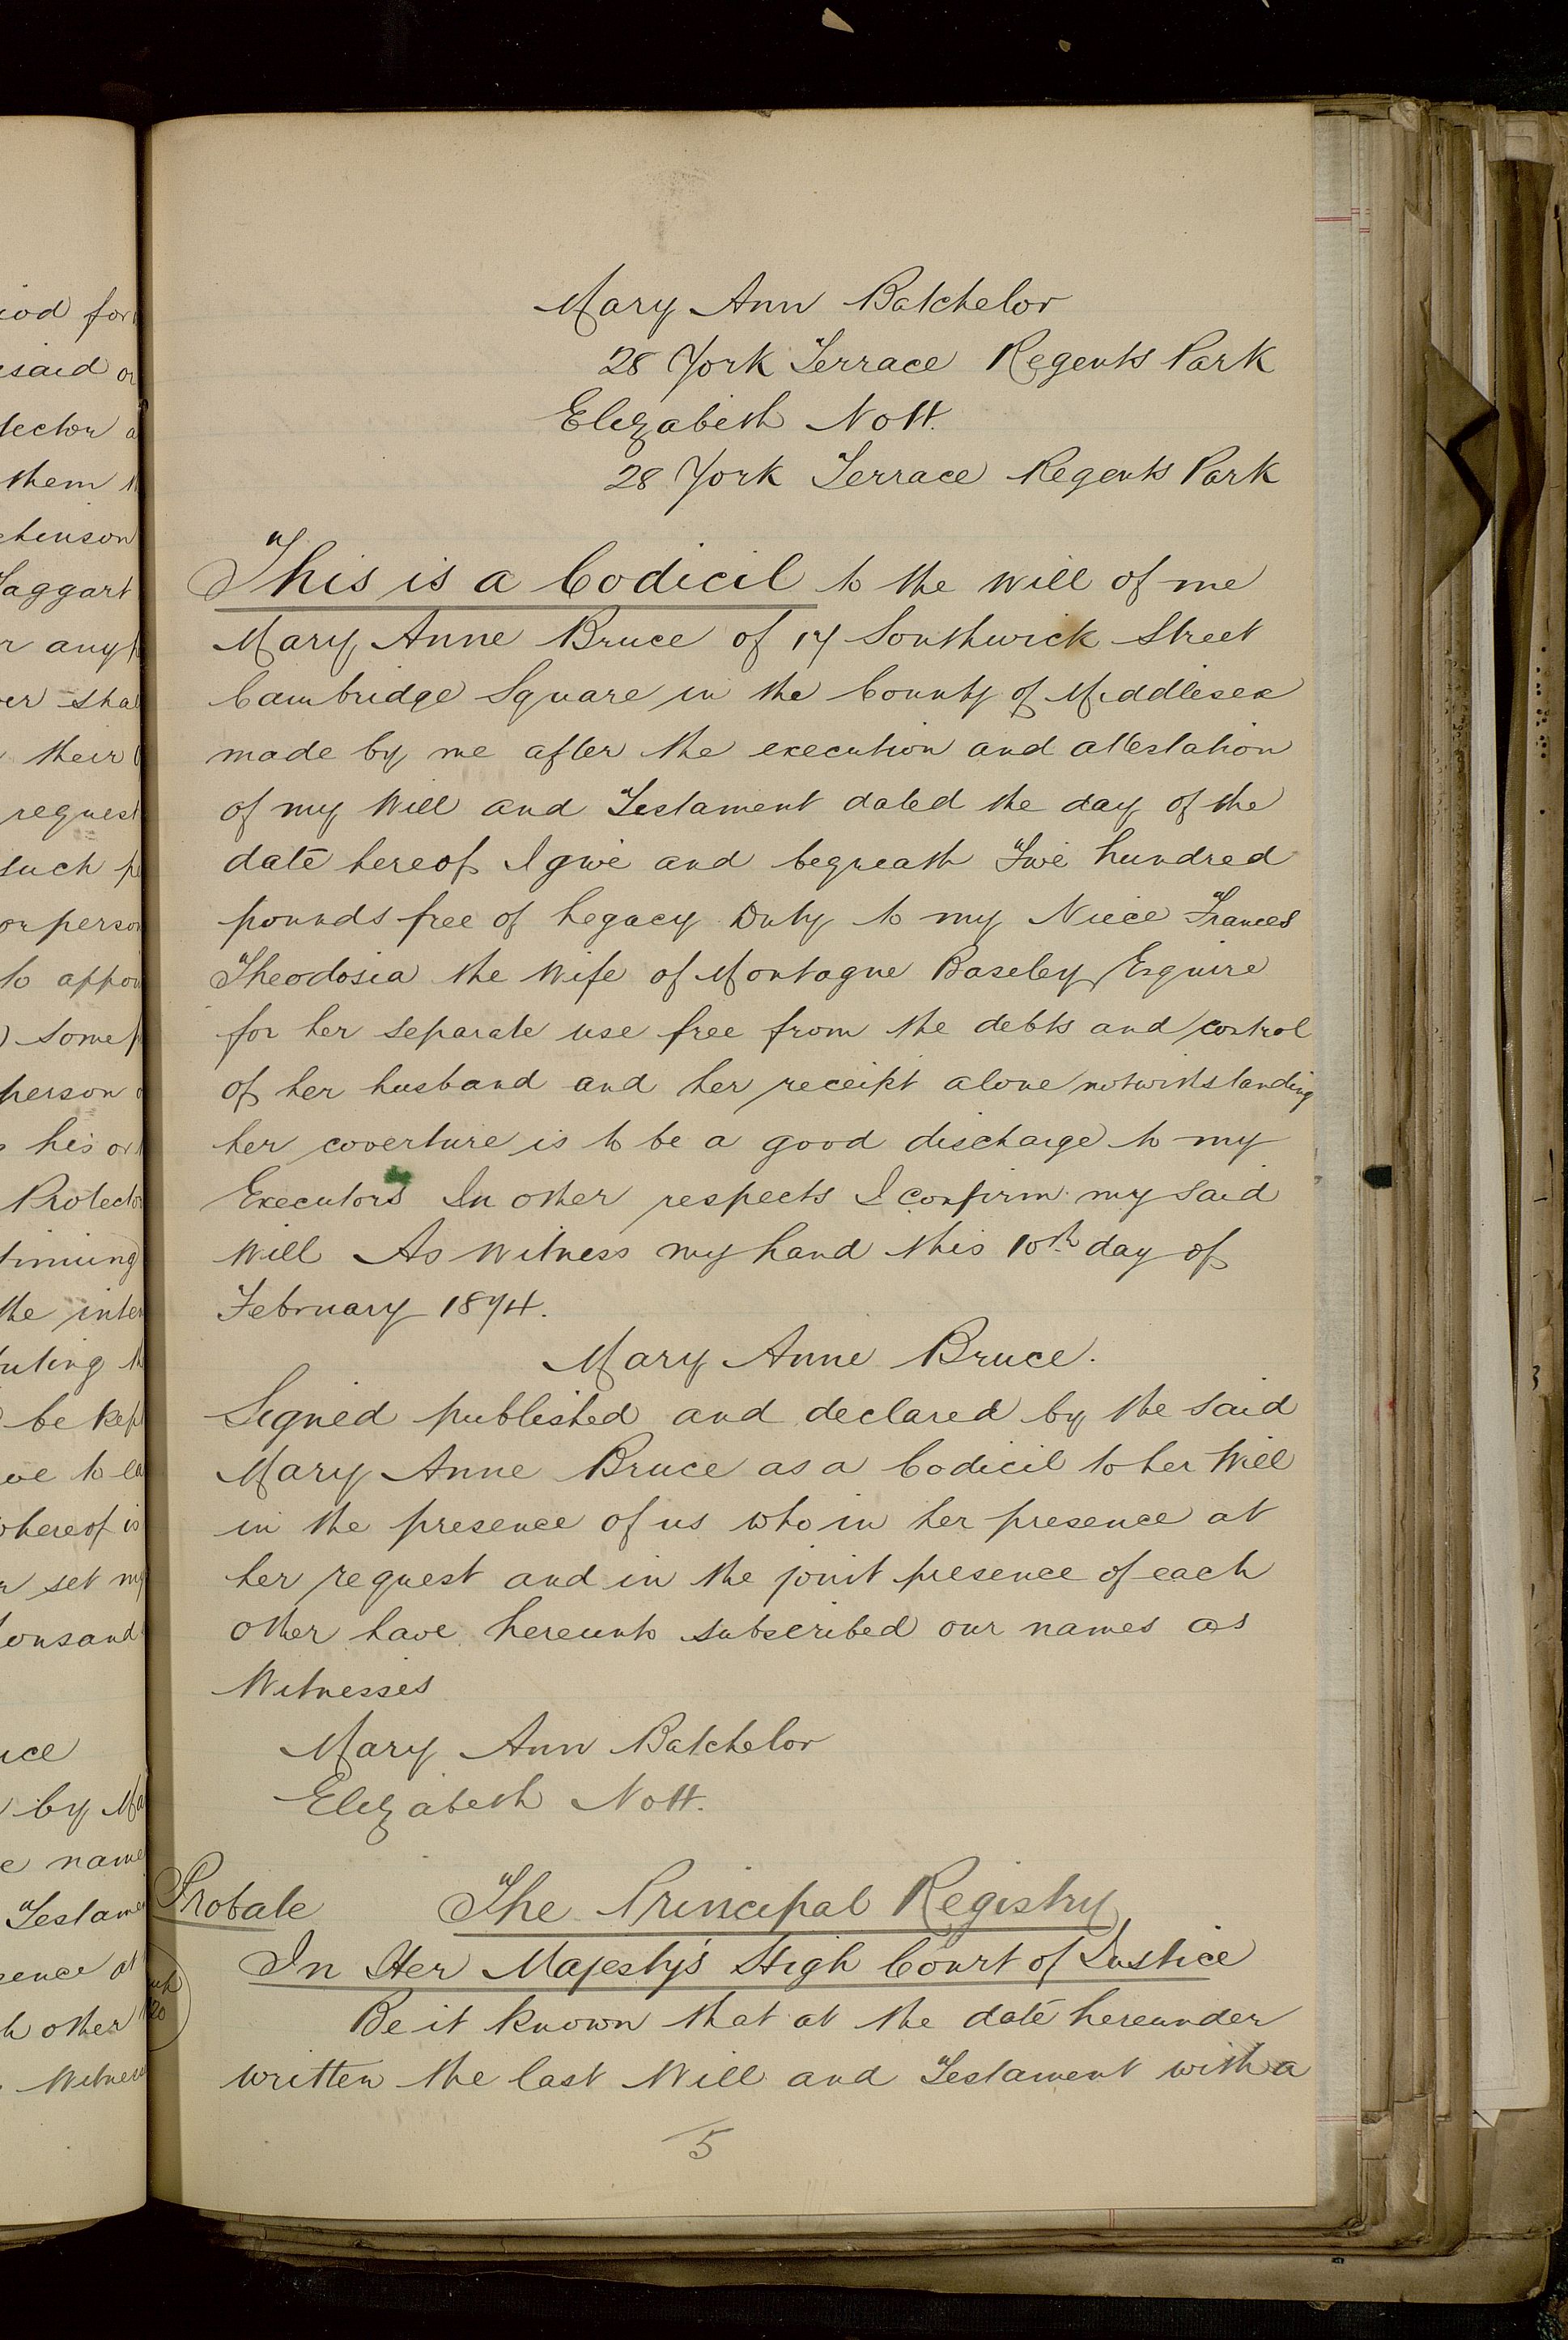 Mary Ann Batchelor
28 York Terrace Regents Park
Elizabeth Nott.
28 York Terrace Regents Park
This is a Codicil to the Will of me
Mary Anne Bruce of 17 Southwick Street
Cambridge Square in the County of Middlesex
made by me after the execution and attestation
of my Will and Testament dated the day of the
date hereof I give and bequeath hundred
pounds free of Legacy Duty to my Niece Frances
Theodosia the Wife of Montague Baseley Esquire
for her separate use free from the debts and control
of her husband and her receipt alone notwithstanding
her coverture is to be a good discharge to my
Executors In other respects I confirm my said
Will As Witness my hand this 10th day of
February 1874.
Mary Anne Bruce.
Signed published and declared by the said
Mary Anne Bruce as a Codicil to her Will
in the presence of us who in her presence at
her request and in the joint presence of each
other have hereunto subscribed our names as
Witnesses
Mary Ann Batchelor
Elizabeth Nott.
Probate The Principal Registry
In Her Majesty's High Court of Justice
Be it known that at the date hereunder
written the last Will and Testament with a
5